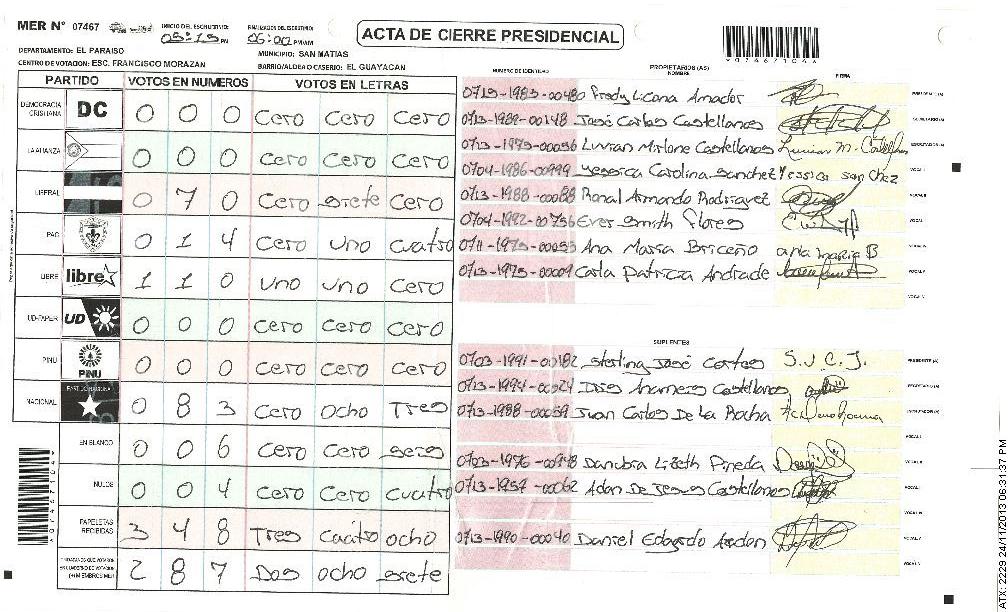 MER N° 07467
INICIO DEL ESCRUTINIO: 05:15 PM
FINALIZACION DEL ESCRUTINIO: 06:00 PM/AM
ACTA DE CIERRE PRESIDENCIAL
*07467104*
DEPARTAMENTO: EL PARAISO
MUNICIPIO: SAN MATIAS
CENTRO DE VOTACION: ESC. FRANCISCO MORAZAN
BARRIO/ALDEA O CASERIO: EL GUAYACAN
PARTIDO VOTOS EN NUMEROS VOTOS EN LETRAS
DEMOCRACIA CRISTIANA DC 0 0 0 Cero Cero Cero
LA ALIANZA 0 0 0 Cero Cero Cero
LIBERAL 0 7 0 Cero siete Cero
PAC 0 1 4 Cero uno cuatro
LIBRE libre 1 1 0 uno uno Cero
UD-FAPER UD 0 0 0 Cero Cero Cero
PINU PINU 0 0 0 Cero Cero Cero
NACIONAL PARTIDO NACIONAL 0 8 3 Cero ocho Tres
EN BLANCO 0 0 6 Cero Cero seis
NULOS 0 0 4 Cero Cero cuatro
PAPELETAS RECIBIDAS 3 4 8 Tres Cuatro ocho
CIUDADANOS QUE VOTARON EN CUADERNO DE VOTACION (+) MIEMBROS MER 2 8 7 Dos ocho siete
NUMERO DE IDENTIDAD PROPIETARIOS (AS) NOMBRE FIRMA
0713-1983-00480 Fredy Licona Amador PRESIDENTE (A)
0713-1989-00148 José Carlos Castellanos SECRETARIO (A)
0713-1975-00056 Livian Mirlone Castellanos ESCRUTADOR (A)
0704-1986-00999 Yessica Carolina Sanchez Yessica Sanchez VOCAL I
0713-1988-00088 Ronal Armando Rodriguez VOCAL II
0704-1992-00756 Ever Smith Flores
0711-1975-00053 Ana Maria Briceño ana maria B
0713-1975-00009 Carla Patricia Andrade
SUPLENTES
0703-1991-00182 Sterling José Cortes S.J.C.J. PRESIDENTE (A)
0713-1994-00024 Castellanos SECRETARIO (A)
0713-1988-00059 Juan Carlos De La Rocha ESCRUTADOR (A)
0703-1976-00948 Danubia Lizeth Pineda
0713-1957-00062 Adan De Jesus Castellanos
0713-1990-00040 Daniel Edgardo
*07467104*
ATX: 2229 24/11/2013 06:31:37 PM